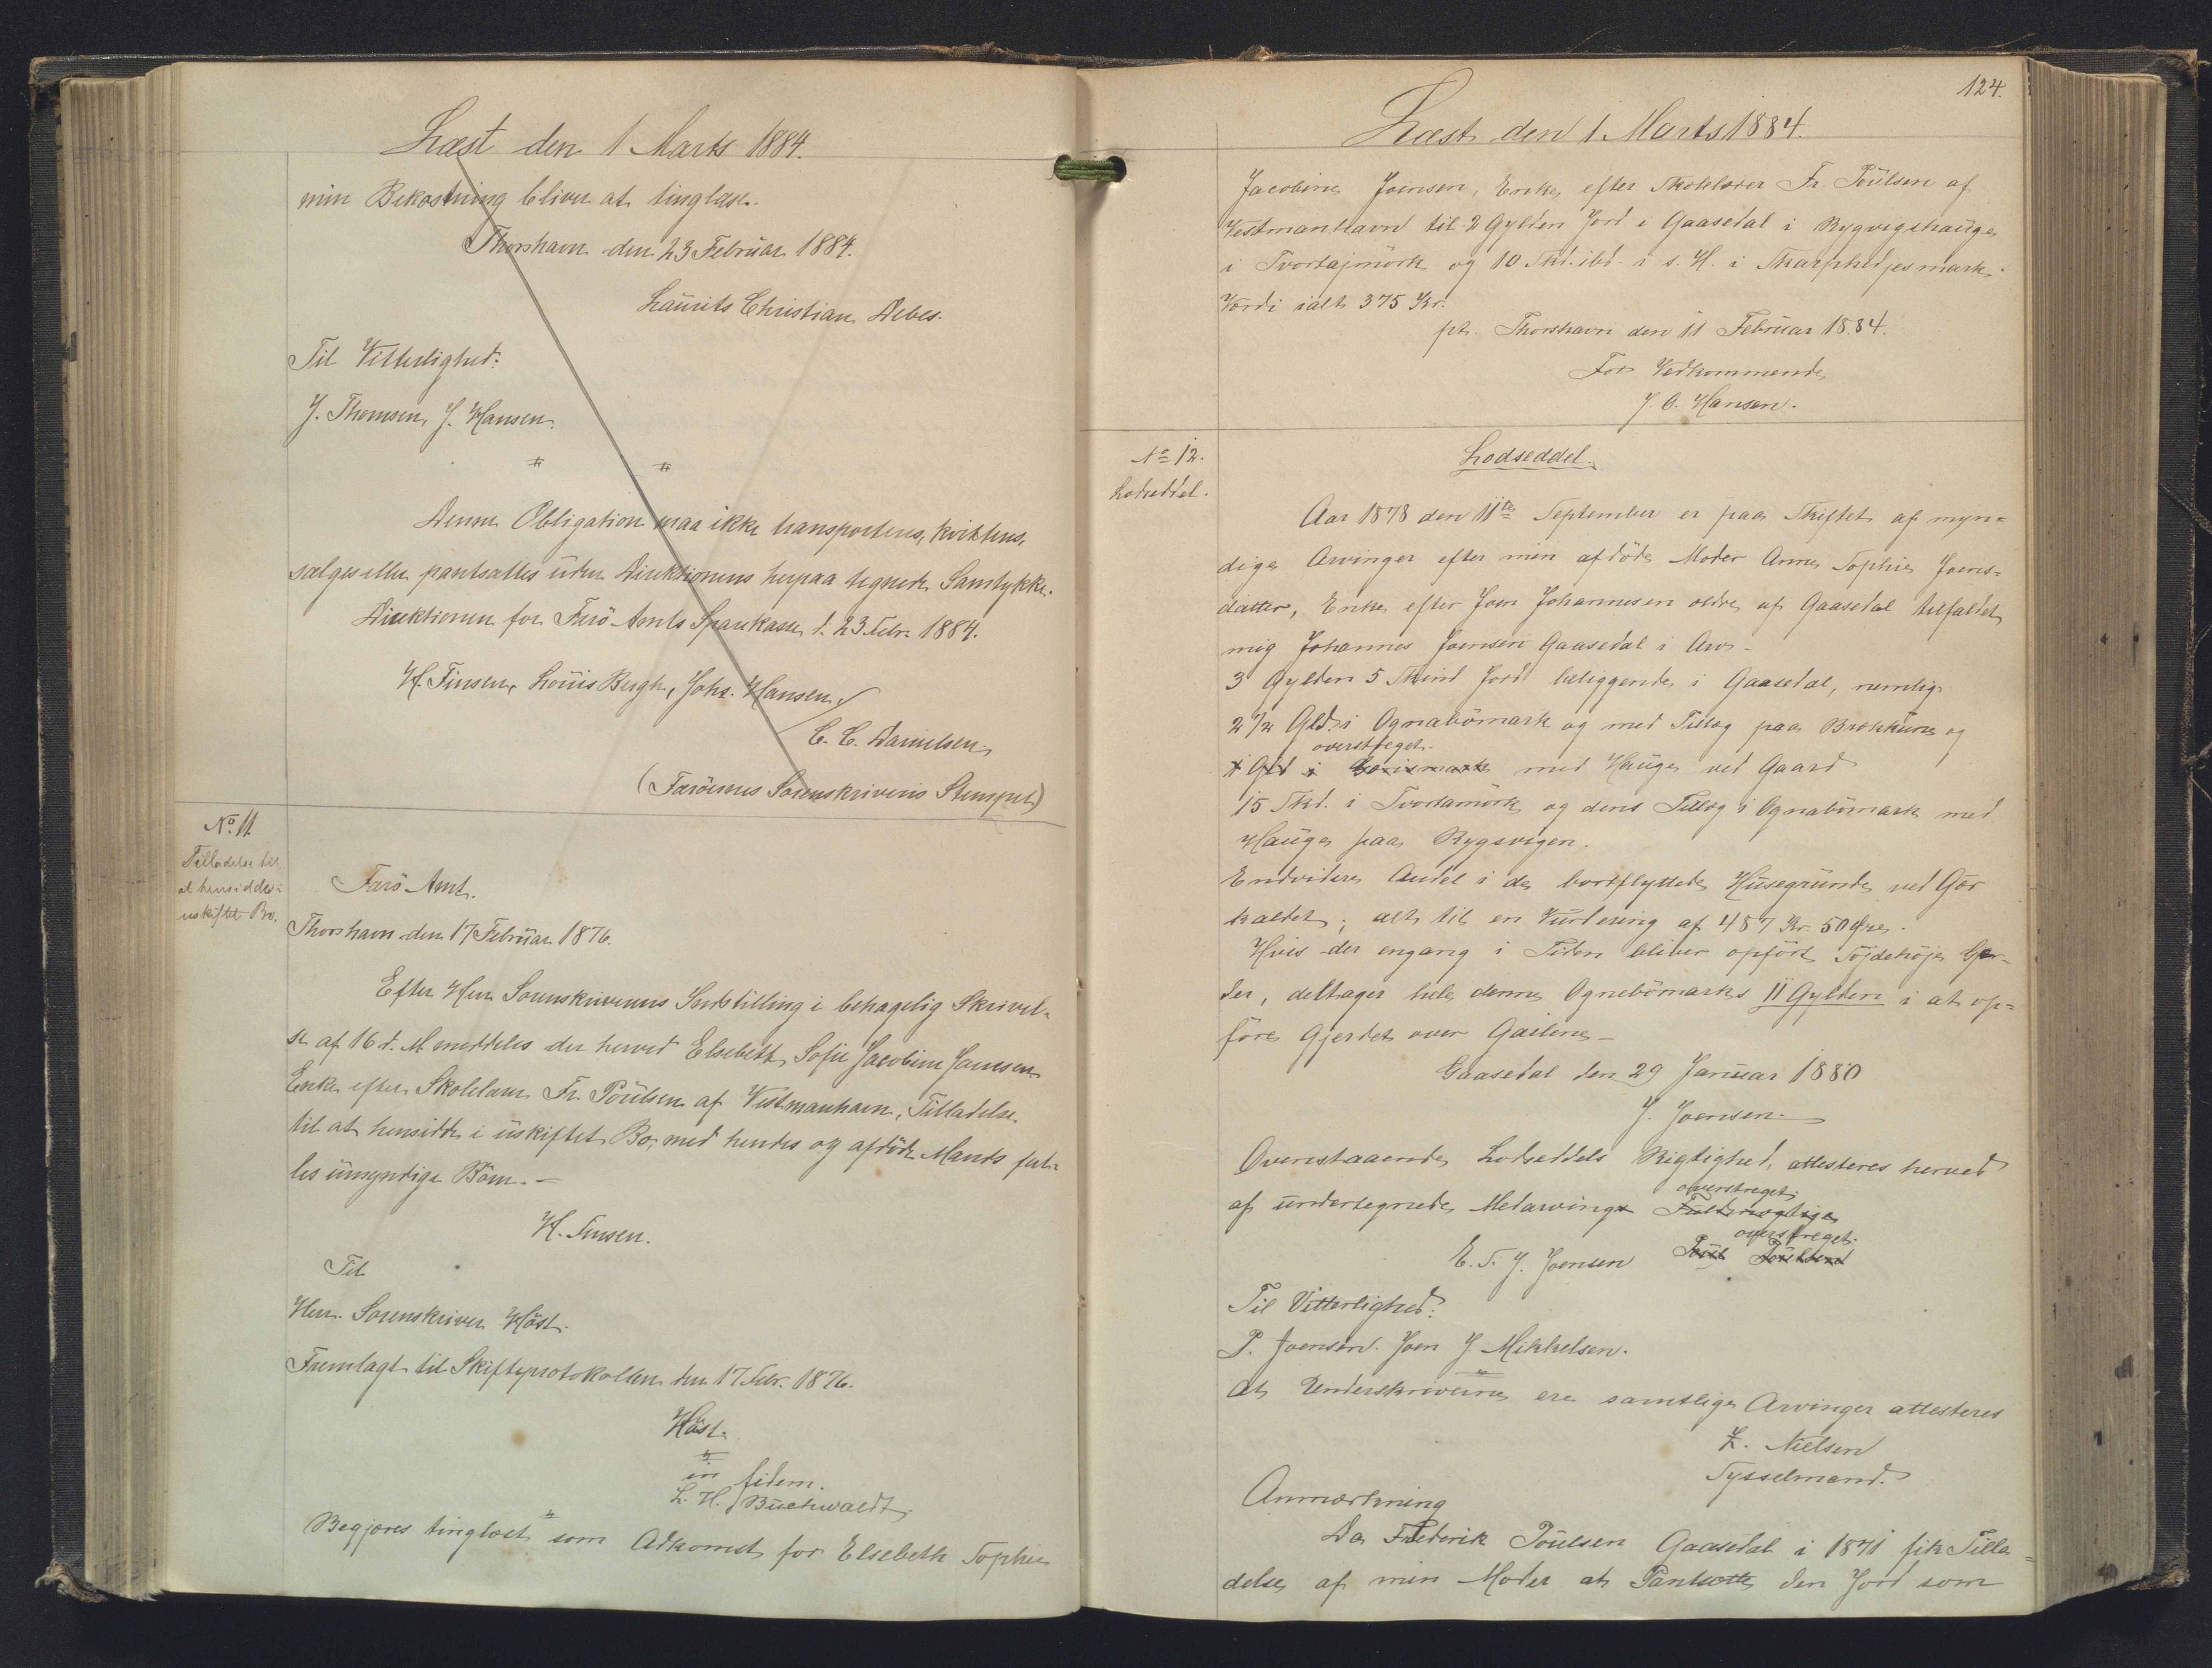 Læst den 1 Marts 1884.
min Bekostning bliver at tinglæse.
Thorshavn den 23 Februar 1884.
Laurits Christian Debes.
Til Vitterlighed:
J. Thomsen, J. Hansen.
Denne Obligation maa ikke transporteres, kvitteres,
sælges eller pantsættes uden Direktionens herpaa tegnede Samtykke.
Direktionen for Færö Amts Sparekasse d. 23 Febr. 1884.
H. Finsen, Louis Bergh, Johs. Hansen,
C. C. Danielsen.
(Færöernes Sorenskrivers Stempel)
No. 11.
Tilladelse til
at hensidde i
uskiftet Bo.
Færö Amt.
Thorshavn den 17 Februar 1876.
Efter Herr Sorenskriverens Indstilling i behagelig Skrivel-
se af 16 d. M meddeles der herved Elsebeth Sofie Jacobine Joensen
Enke efter Skolelærer Fr. Poulsen af Vestmanhavn, Tilladelse
til at hensidde i uskiftet Bo, med hendes og afdöde Mands fæl-
les umyndige Börn. —
H. Finsen.
Til
Herr. Sorenskriver Höst.
Fremlagt til Skifteprotokollen den 17 Febr. 1876.
Höst.
in fidem.
L. H. Buchwaldt
Begjæres tinglæst som Adkomst for Elsebeth Sophie
124.
Læst den 1 Marts 1884.
Jacobine Joensen, Enke efter Skolelærer Fr. Poulsen af
Vestmanhavn til 2 Gylden Jord i Gaasedal i Rygvigshauge
i Tvortajmörk og 10 Skd. ibd. i s. H. i Skarphedjesmark.
Værdi ialt 375 Kr.
pt. Thorshavn den 11 Februar 1884.
For Vedkommende
J. O. Hansen.
No 12.
Lodseddel.
Lodseddel.
Aar 1878 den 11te September er paa Skiftet af myn=
dige Arvinger efter min afdöde Moder Anne Sophie Joens=
datter, Enke efter Joen Johannesen ældre af Gaasedal tilfaldet
mig Johannes Joensen Gaasedal i Arv -
3 Gylden 5 Skind Jord beliggende i Gaasedal, nemlig
2 1/2 Gld. i Ognabömark og med Tillæg paa Brækkune og
overstreget.
1 Gld i mark med Hauge ved Gaard
15 Skd. i Tvortamörk og dens Tillæg i Ognabömark med
Hauge paa Rygsvigen.
Endvidere Andel i de bortflyttede Husegrunde ved Gör
kaldet; alt til en Vurdering af 457 Kr. 50 Öre.
Hvis der engang i Tiden bliver opfört Töjdehöje Gjer-
der, deltager hele denne Ognebömarks 11 Gylden i at op=
före Gjerdet over Gailene -
Gaasedal den 29 Januar 1880
J. Joensen.
Ovenstaaende Lodseddels Rigtighed, attesteres herved
overstreget.
af undertegnede Medarvinge Fuldmægtige
overstreget.
E. S. J. Joensen Poul Poulsen
Til Vitterlighed:
P. Joensen. Joen J. Mikkelsen.
At Underskriverne ere samtlige Arvinger attesteres
L. Nielsen
Sysselmand.
Anmærkning
Da Frederik Poulsen Gaasedal i 1871 fik Tilla=
delse af min Moder at Pantsætte den Jord som